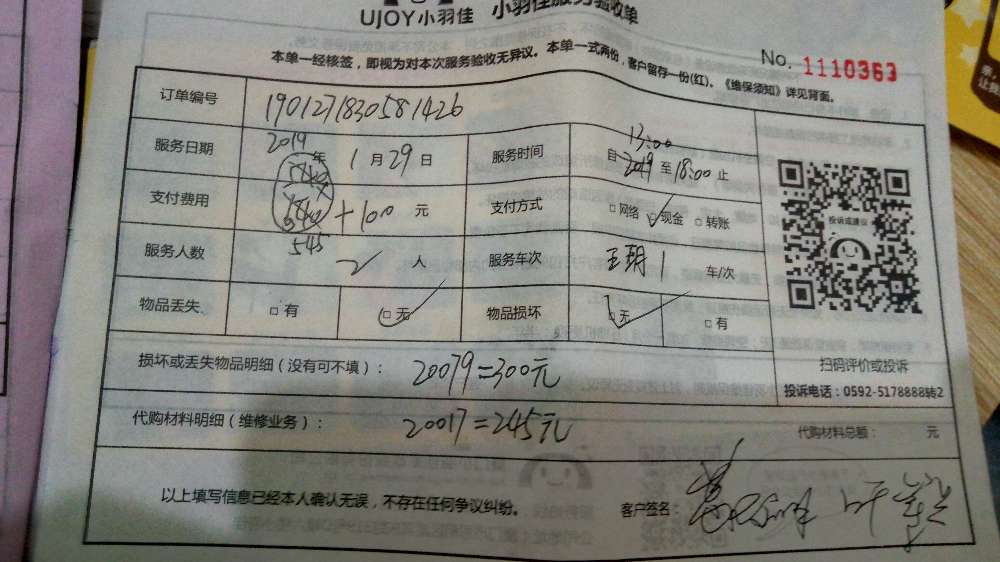 UJOY小羽佳 小羽佳服务验收单
No. 1110363
本单一经核签，即视为对本次服务验收无异议。本单一式两份，客户留存一份(红)。《维保须知》详见背面。
订单编号 1901271830581426
服务日期 2019年1月29日 服务时间 自13:00 2019至18:00止
支付费用 545+100元 支付方式 □网络 □现金 □转账
服务人数 2人 服务车次 1车/次
物品丢失 □有 □无 物品损坏 □无 □有
投诉或建议
扫码评价或投诉
投诉电话：0592-5178888转2
损坏或丢失物品明细（没有可不填）：20079=300元
代购材料明细（维修业务）：20017=245元 代购材料总额： 元
以上填写信息已经本人确认无误，不存在任何争议纠纷。 客户签名：